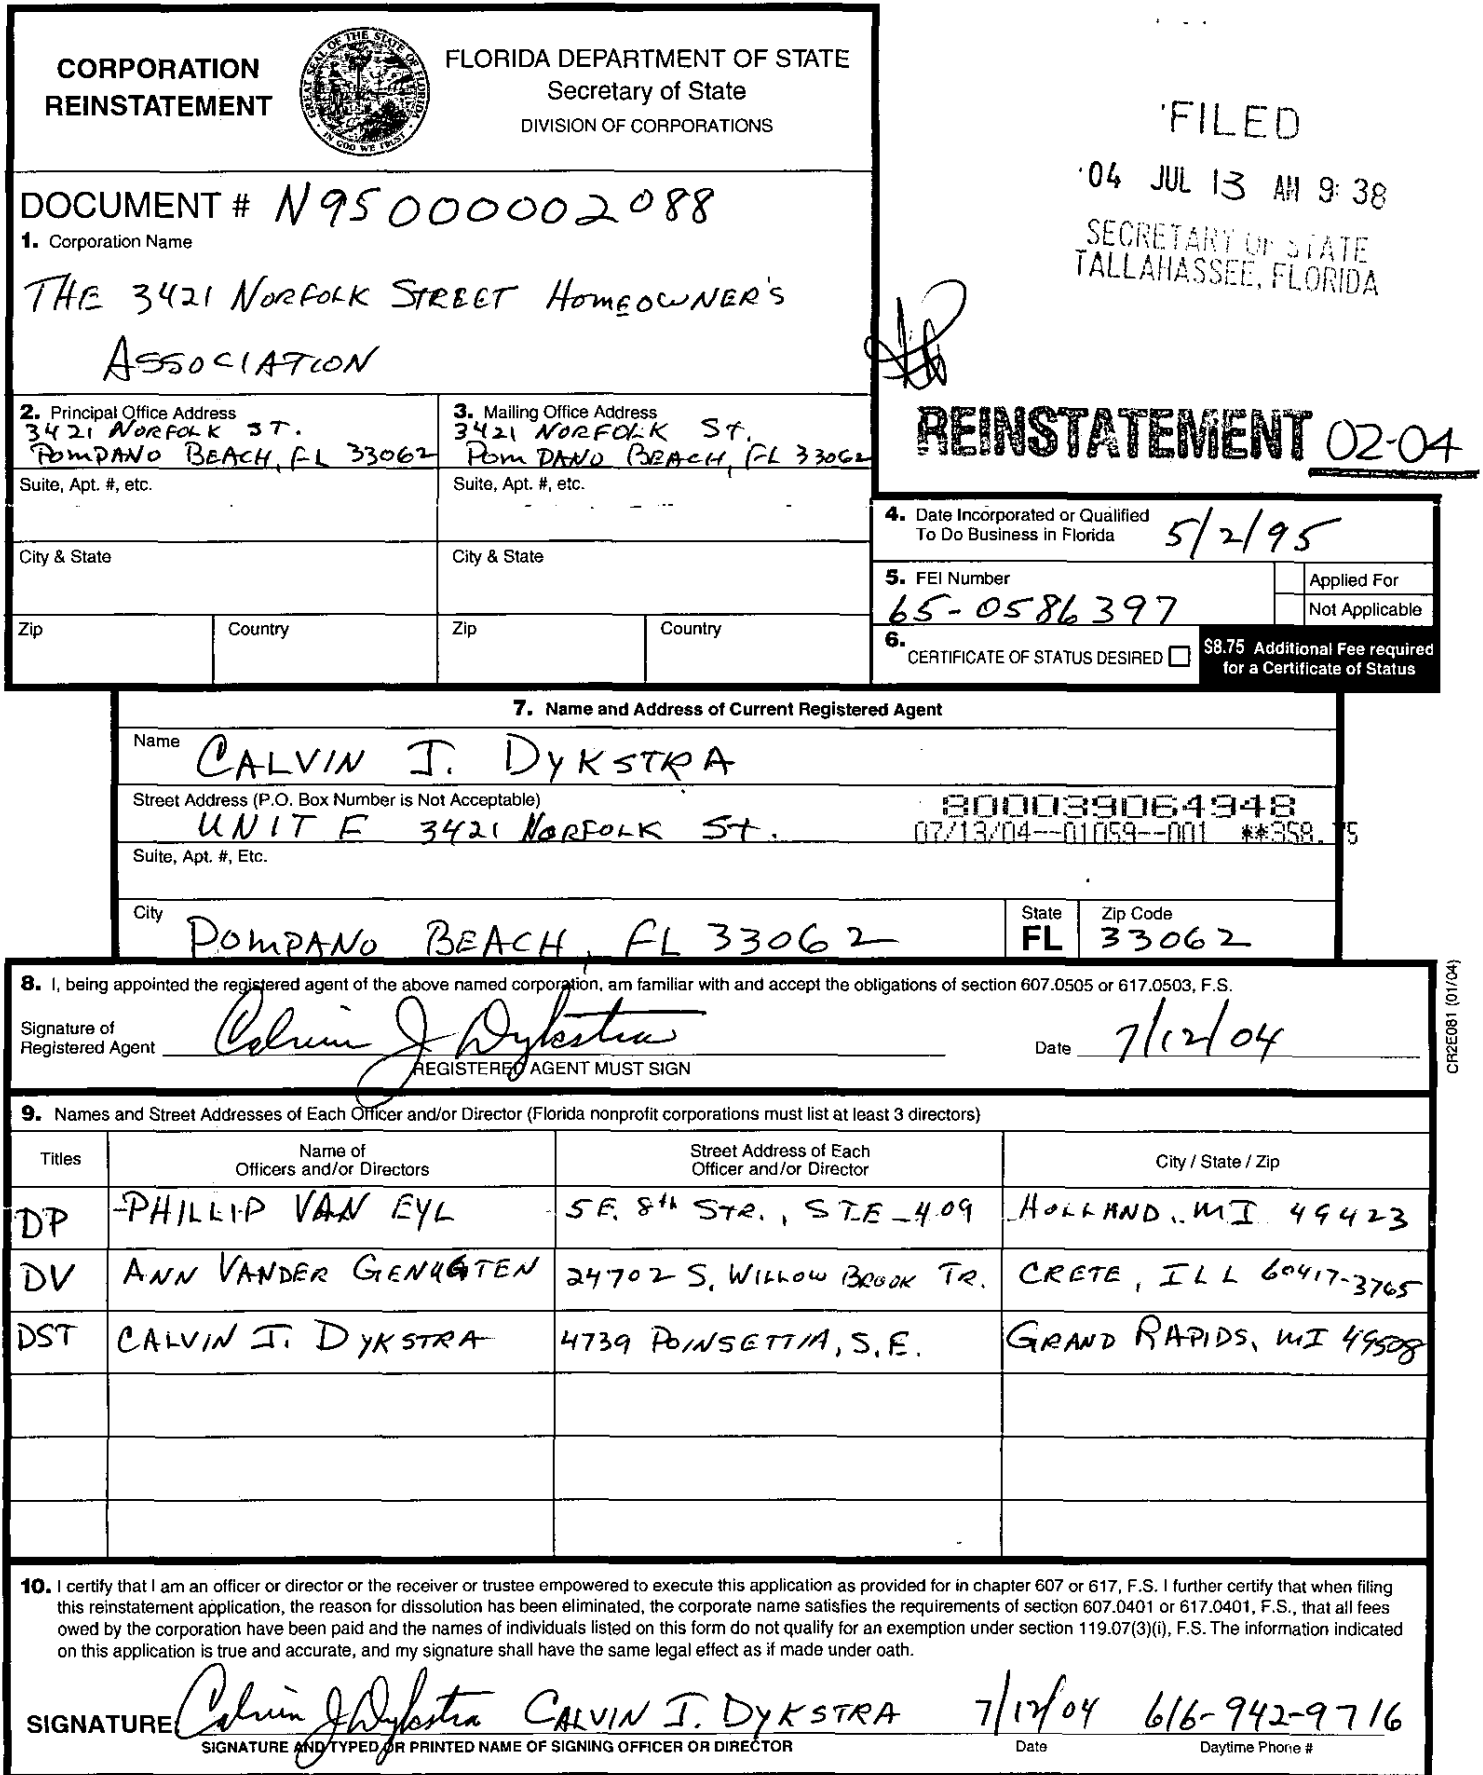 CORPORATION
REINSTATEMENT
GREAT SEAL OF THE STATE OF FLORIDA
IN GOD WE TRUST
FLORIDA DEPARTMENT OF STATE
Secretary of State
DIVISION OF CORPORATIONS
FILED
04 JUL 13 AM 9:38
SECRETARY OF STATE
TALLAHASSEE, FLORIDA
DOCUMENT # N95000002088
1. Corporation Name
THE 3421 NORFOLK STREET HOMEOWNER'S
ASSOCIATION
REINSTATEMENT 02-04
2. Principal Office Address
3421 NORFOLK ST.
POMPANO BEACH, FL 33062
Suite, Apt. #, etc.
City & State
Zip
Country
3. Mailing Office Address
3421 NORFOLK St.
POMPANO BEACH, FL 33062
Suite, Apt. #, etc.
City & State
Zip
Country
4. Date Incorporated or Qualified
To Do Business in Florida 5/2/95
5. FEI Number
65-0586397
Applied For
Not Applicable
6.
CERTIFICATE OF STATUS DESIRED
$8.75 Additional Fee required
for a Certificate of Status
7. Name and Address of Current Registered Agent
Name CALVIN J. DYKSTRA
Street Address (P.O. Box Number is Not Acceptable)
UNIT E 3421 NORFOLK St.
800039064948
07/13/04--01059--001 **358.75
Suite, Apt. #, Etc.
City POMPANO BEACH, FL 33062
State
FL
Zip Code
33062
8. I, being appointed the registered agent of the above named corporation, am familiar with and accept the obligations of section 607.0505 or 617.0503, F.S.
Signature of
Registered Agent Calvin J Dykstra
REGISTERED AGENT MUST SIGN
Date 7/12/04
CR2E081 (01/04)
9. Names and Street Addresses of Each Officer and/or Director (Florida nonprofit corporations must list at least 3 directors)
Titles
Name of
Officers and/or Directors
Street Address of Each
Officer and/or Director
City / State / Zip
DP PHILLIP VAN EYL 5 E. 8th STR., STE-409 HOLLAND, MI 49423
DV ANN VANDER GENUGTEN 24702 S. WILLOW BROOK TR. CRETE, ILL 60417-3765
DST CALVIN J. DYKSTRA 4739 POINSETTIA, S.E. GRAND RAPIDS, MI 49508
10. I certify that I am an officer or director or the receiver or trustee empowered to execute this application as provided for in chapter 607 or 617, F.S. I further certify that when filing
this reinstatement application, the reason for dissolution has been eliminated, the corporate name satisfies the requirements of section 607.0401 or 617.0401, F.S., that all fees
owed by the corporation have been paid and the names of individuals listed on this form do not qualify for an exemption under section 119.07(3)(i), F.S. The information indicated
on this application is true and accurate, and my signature shall have the same legal effect as if made under oath.
SIGNATURE Calvin J Dykstra CALVIN J. DYKSTRA 7/12/04 616-942-9716
SIGNATURE AND TYPED OR PRINTED NAME OF SIGNING OFFICER OR DIRECTOR
Date
Daytime Phone #